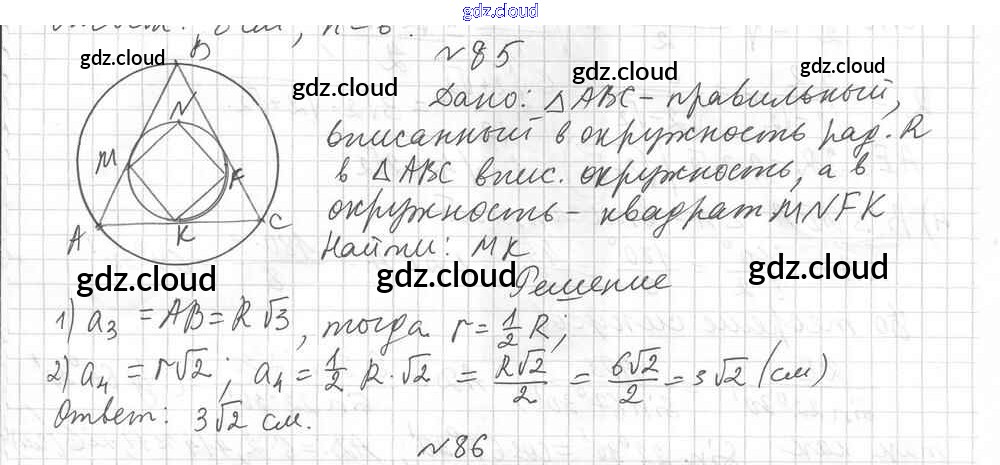 gdz.cloud
n = 6.
№ 85
gdz.cloud
gdz.cloud
gdz.cloud
gdz.cloud
B
N
M
F
A
K
C
Дано: △ABC - правильный,
вписанный в окружность рад. R
в △ABC впис. окружность, а в
окружность - квадрат MNFK
Найти: MK
gdz.cloud
gdz.cloud
gdz.cloud
Решение
1) a₃ = AB = R√3, тогда r = 1/2 R;
2) a₄ = r√2; a₄ = 1/2 R · √2 = R√2/2 = 6√2/2 = 3√2 (см)
Ответ: 3√2 см.
№ 86